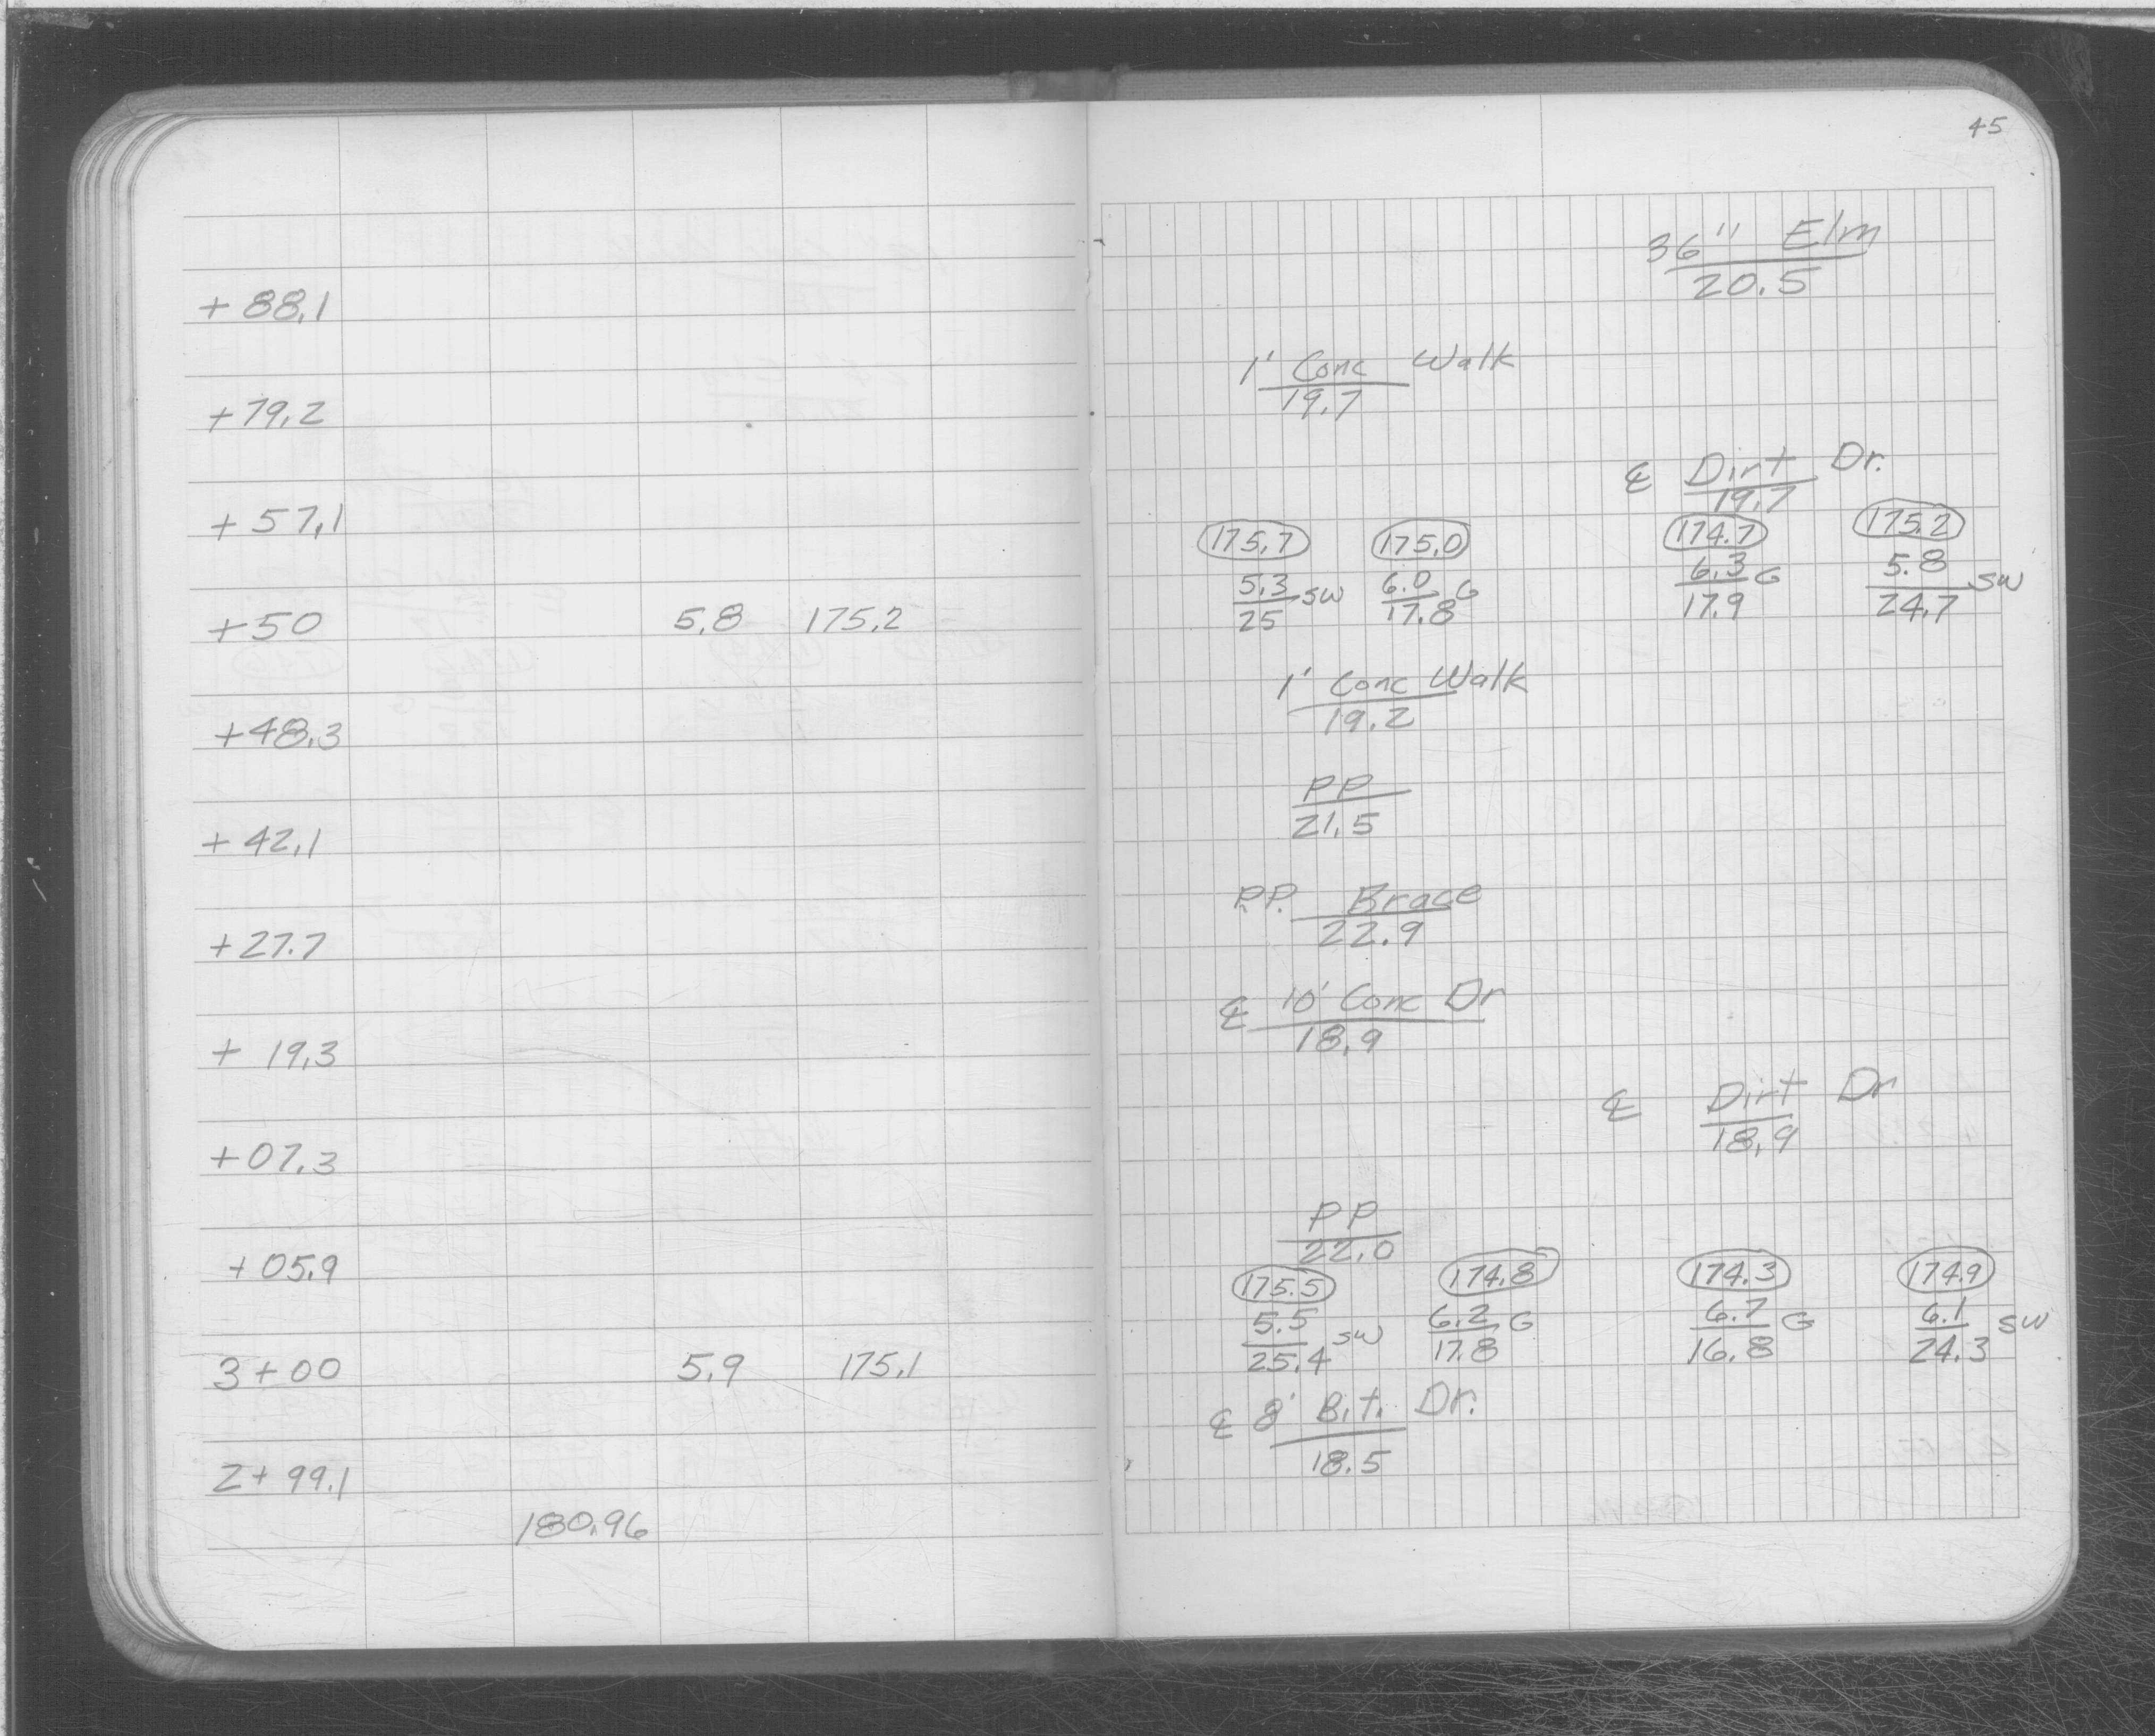 45
36" Elm
20.5
+ 88.1
1' Conc Walk
19.7
+79.2
℄ Dirt Dr.
19.7
+ 57.1
175.7 175.0 174.7 175.2
5.3 SW 6.0 G 6.3 G 5.8 SW
25 17.8 17.9 24.7
+50 5.8 175.2
1' Conc Walk
19.2
+48.3
PP
21.5
+ 42.1
P.P. Brace
22.9
+27.7
℄ 10' Conc Dr
18.9
+ 19.3
℄ Dirt Dr
18.9
+07.3
PP
22.0
+ 05.9
175.5 174.8 174.3 174.9
5.5 SW 6.2 G 6.7 G 6.1 SW
25.4 17.8 16.8 24.3
3+00 5.9 175.1
℄ 8' Bit. Dr.
18.5
2+99.1
180.96